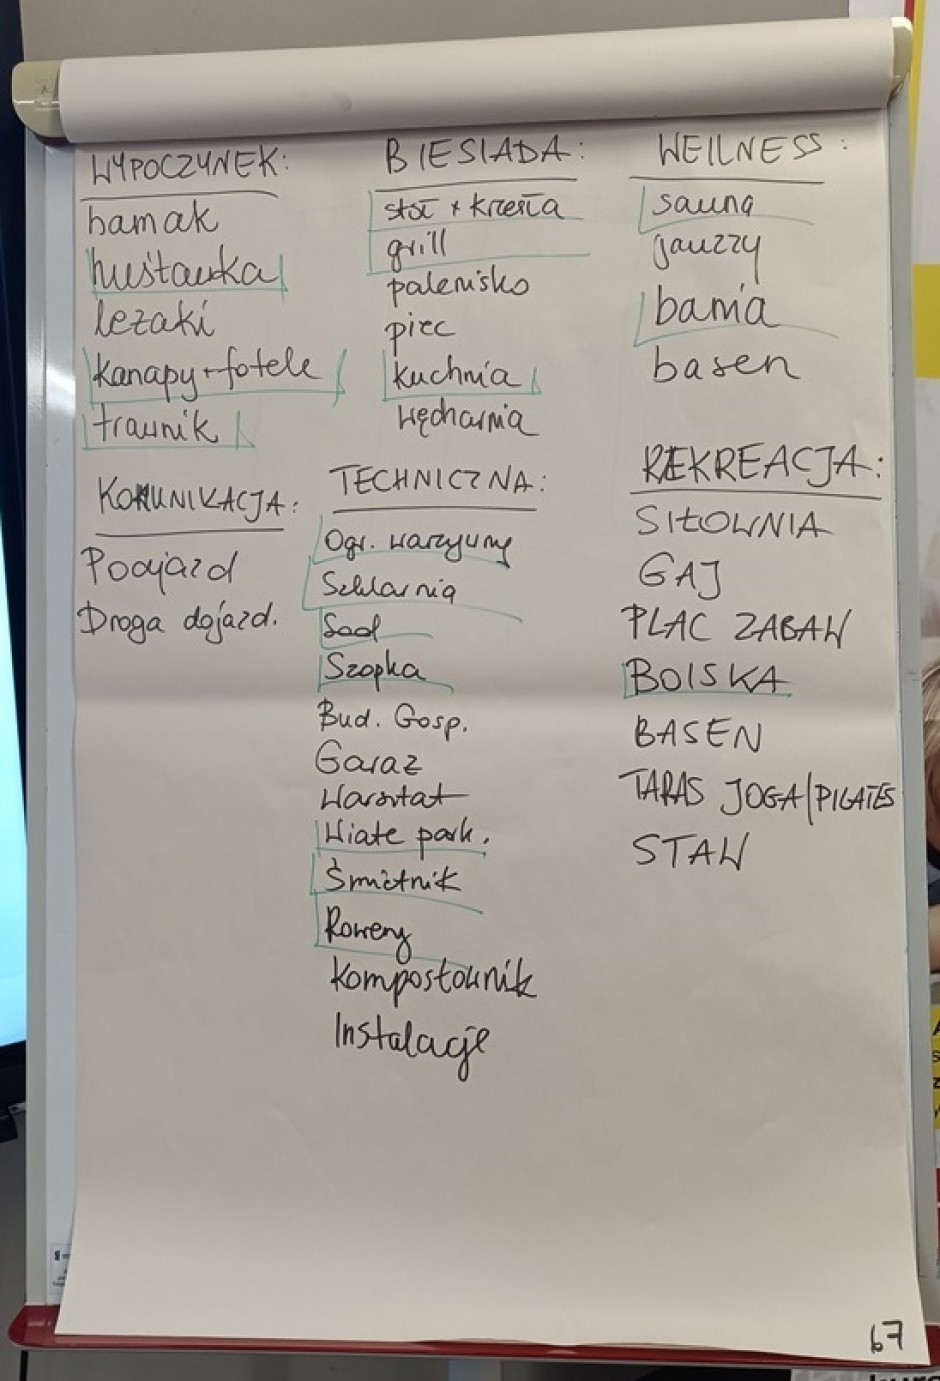 WYPOCZYNEK:
hamak
huśtawka
leżaki
kanapy + fotele
trawnik
KOMUNIKACJA:
Podjazd
Droga dojazd.
BIESIADA:
stół + krzesła
grill
palenisko
piec
kuchnia
wędharnia
TECHNICZNA:
Ogr. warzywny
Szklarnia
Sad
Szopka
Bud. Gosp.
Garaż
Warsztat
Wiate park.
Śmietnik
Rowery
Kompostownik
Instalacje
WELLNESS:
sauna
jauzzy
bania
basen
REKREACJA:
SIŁOWNIA
GAJ
PLAC ZABAW
BOISKA
BASEN
TARAS JOGA/PILATES
STAW
67